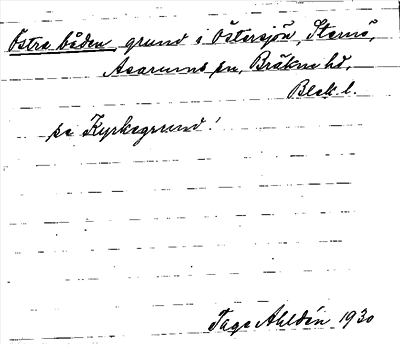 Östra båden, grund i Östersjön, Sternö,
Asarums sn, Bräkne hd,
Blek. l.
se Kyrkogrund!
Tage Ahldén 1930